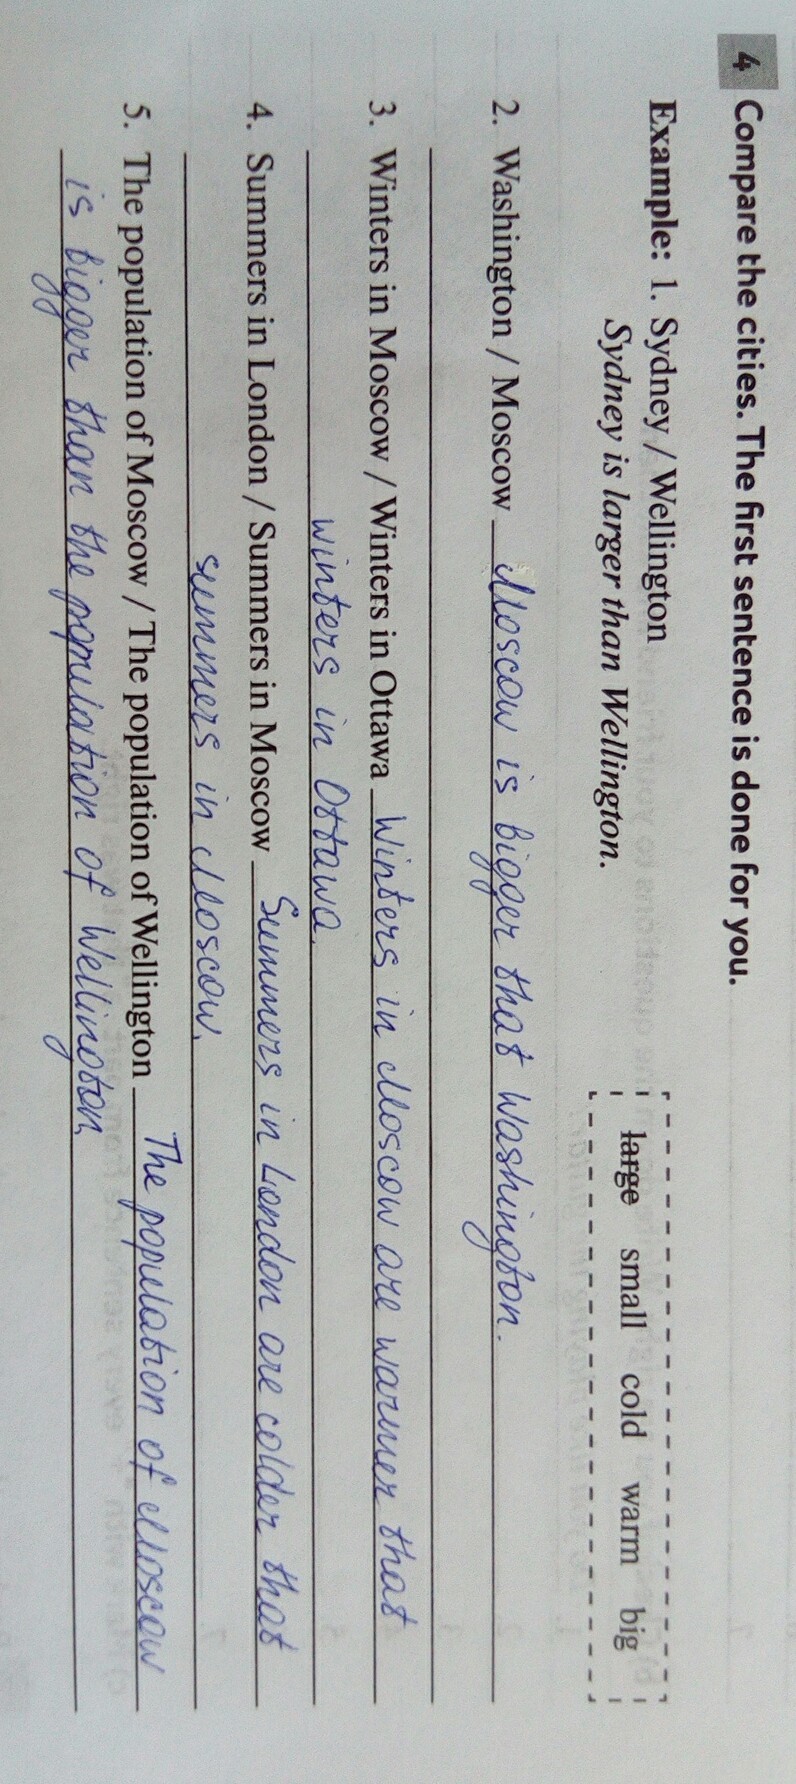 4 Compare the cities. The first sentence is done for you.
Example: 1. Sydney / Wellington
Sydney is larger than Wellington.
large small cold warm big
2. Washington / Moscow Moscow is bigger that Washington.
3. Winters in Moscow / Winters in Ottawa Winters in Moscow are warmer that
winters in Ottawa.
4. Summers in London / Summers in Moscow Summers in London are colder that
summers in Moscow.
5. The population of Moscow / The population of Wellington The population of Moscow
is bigger than the population of Wellington.